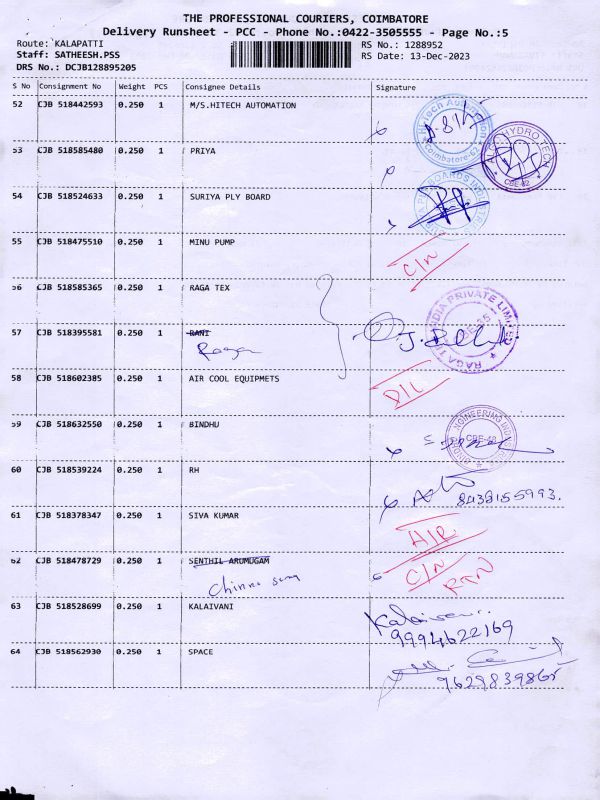 THE PROFESSIONAL COURIERS, COIMBATORE
Delivery Runsheet - PCC - Phone No.:0422-3505555 - Page No.:5
Route: KALAPATTI
Staff: SATHEESH.PSS
DRS No.: DCJB128895205
RS No.: 1288952
RS Date: 13-Dec-2023
S No Consignment No Weight PCS Consignee Details Signature
52 CJB 518442593 0.250 1 M/S.HITECH AUTOMATION
53 CJB 518585480 0.250 1 PRIYA
54 CJB 518524633 0.250 1 SURIYA PLY BOARD
55 CJB 518475510 0.250 1 MINU PUMP C/N
56 CJB 518585365 0.250 1 RAGA TEX
57 CJB 518395581 0.250 1 RANI
58 CJB 518602385 0.250 1 AIR COOL EQUIPMETS D/L
59 CJB 518632550 0.250 1 BINDHU
60 CJB 518539224 0.250 1 RH
8438155993.
61 CJB 518378347 0.250 1 SIVA KUMAR
62 CJB 518478729 0.250 1 SENTHIL ARUMUGAM C/N
63 CJB 518528699 0.250 1 KALAIVANI
9994622169
64 CJB 518562930 0.250 1 SPACE
9629839865